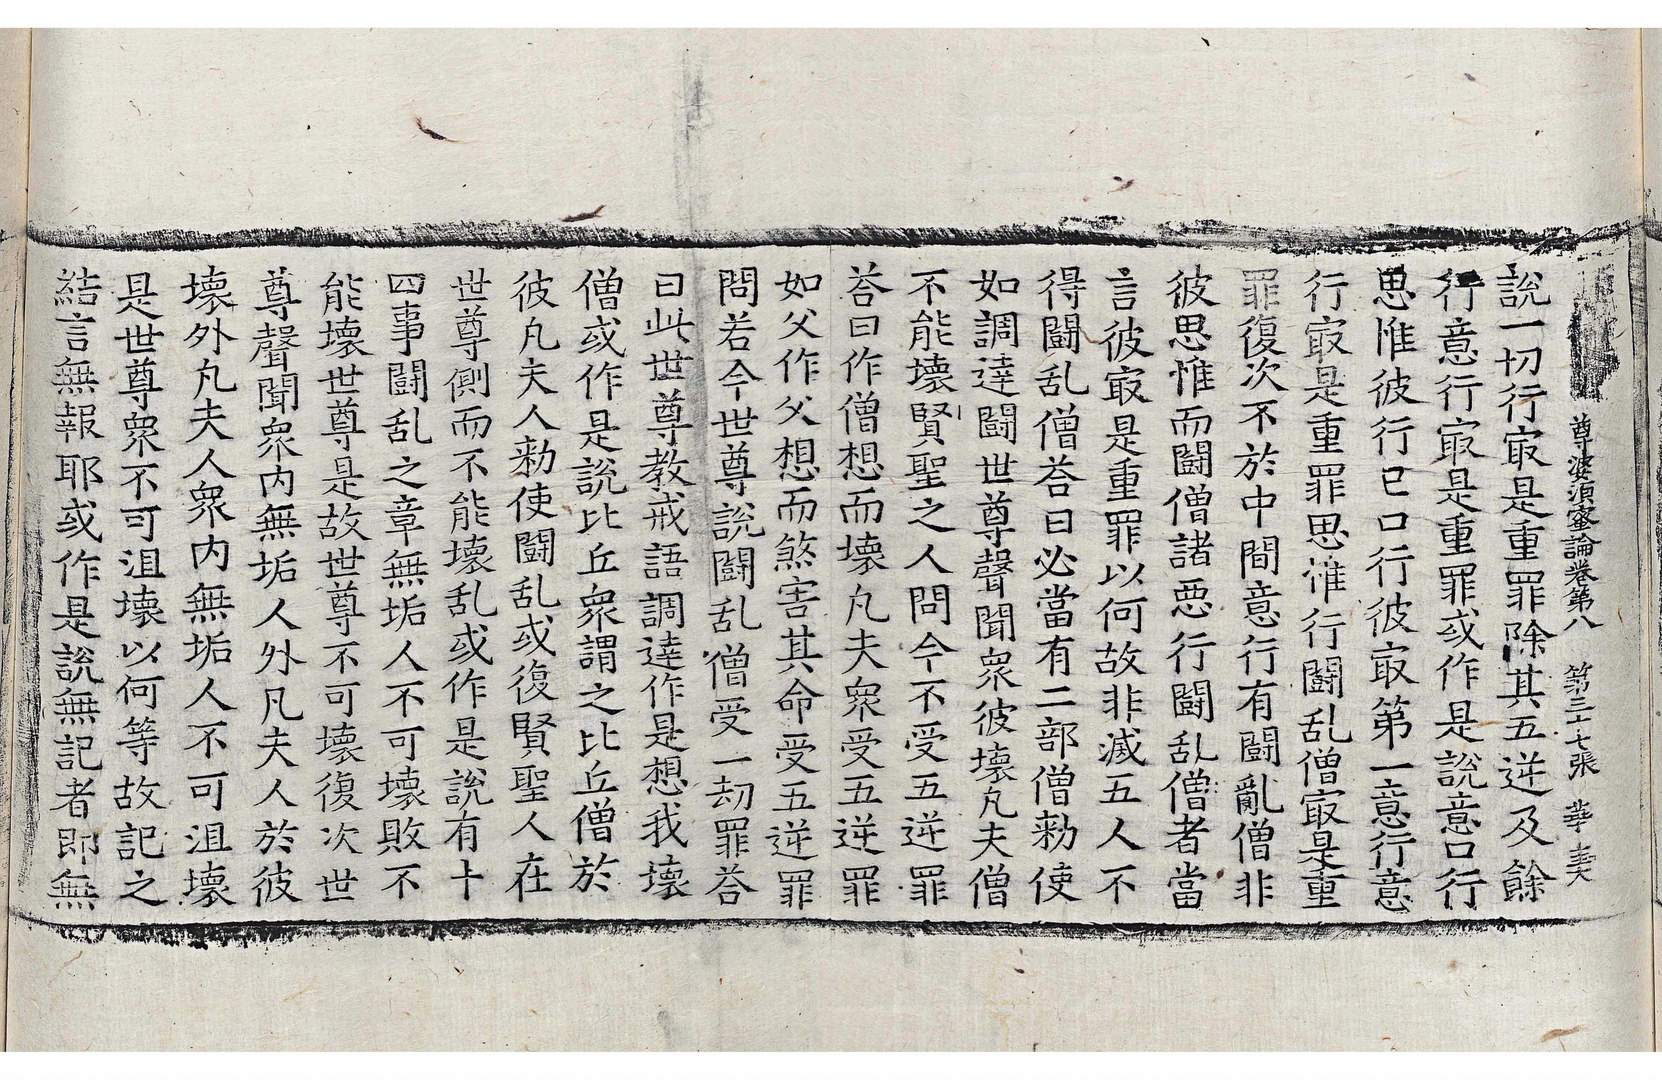 尊婆須蜜論卷第八　第三十七張　華
說一切行㝡是重罪除其五逆及餘
行意行㝡是重罪或作是說意口行
思惟彼行已口行彼㝡第一意行意
行㝡是重罪思惟行鬪乱僧㝡是重
罪復次不於中間意行有鬪亂僧非
彼思惟而鬪僧諸惡行鬪乱僧者當
言彼㝡是重罪以何故非滅五人不
得鬪乱僧荅曰必當有二部僧勑使
如調達鬪世尊聲聞衆彼壞凡夫僧
不能壞賢聖之人問今不受五逆罪
荅曰作僧想而壞凡夫衆受五逆罪
如父作父想而煞害其命受五逆罪
問若今世尊說鬪乱僧受一劫罪荅
曰此世尊教戒語調達作是想我壞
僧或作是說比丘衆謂之比丘僧於
彼凡夫人勑使鬪乱或復賢聖人在
世尊側而不能壞乱或作是說有十
四事鬪乱之章無垢人不可壞敗不
能壞世尊是故世尊不可壞復次世
尊聲聞衆內無垢人外凡夫人於彼
壞外凡夫人衆內無垢人不可沮壞
是世尊衆不可沮壞以何等故記之
結言無報耶或作是說無記者即無